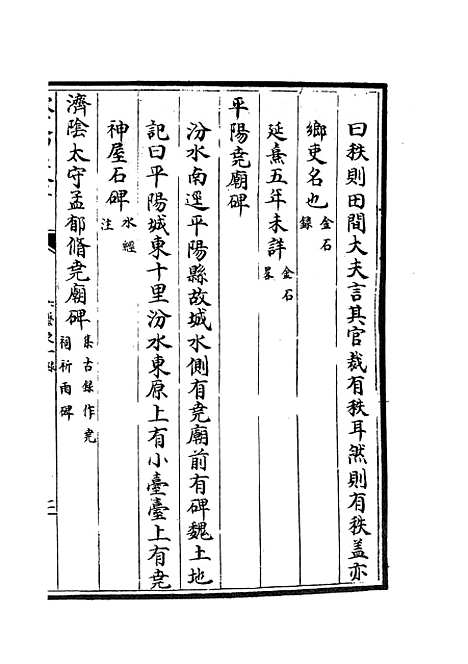 曰秩則田間大夫言其官裁有秩耳然則有秩蓋亦
鄉吏名也金石錄
延熹五年未詳金石畧
平陽堯廟碑
汾水南逕平陽縣故城水側有堯廟前有碑魏土地
記曰平陽城東十里汾水東原上有小臺臺上有堯
神屋石碑水經注
濟陰太守孟郁脩堯廟碑集古錄作堯祠祈雨碑